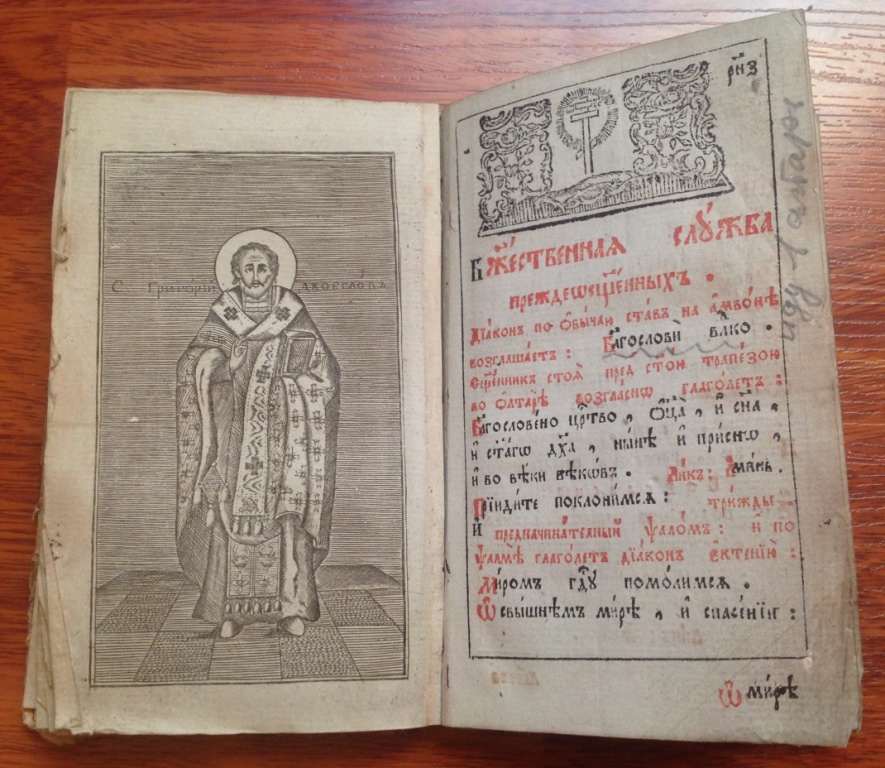 С. ГРИГОРІЙ ДВОЕСЛОВЪ
рн҃з
Бж҃ественная слꙋ́жба
преждеѡсщ҃е́нныхъ .
Дїа́конъ по ѡ҆бы́чаю ста́въ на а҆мво́нѣ
возглаша́етъ : Благослови̂ влⷣко .
Сщ҃е́нникъ стоѧ̀ пред̾ ст҃о́ю трапе́зою
во ѻ҆лтарѣ̀ возгла́снѡ глаго́летъ :
Благослове́но црⷭ҇тво , ѻ҆ц҃а̀ , и҆ сн҃а ,
и҆ ст҃а́гѡ дх҃а , ны́нѣ и҆ при́снѡ ,
и҆ во вѣ́ки вѣкѡ́въ . Ли́къ : А҆ми́нь .
Прїиди́те поклони́мсѧ : три́жды
И҆ предначина́телный ѱало́мъ : и҆ по
ѱалмѣ̀ глаго́летъ дїа́конъ є҆ктенїѝ :
Ми́ромъ гдⷭ҇ꙋ помо́лимсѧ .
Ѿ свы́шнѣмъ ми́рѣ , и҆ спасе́нїи :
Ѿ ми́рѣ